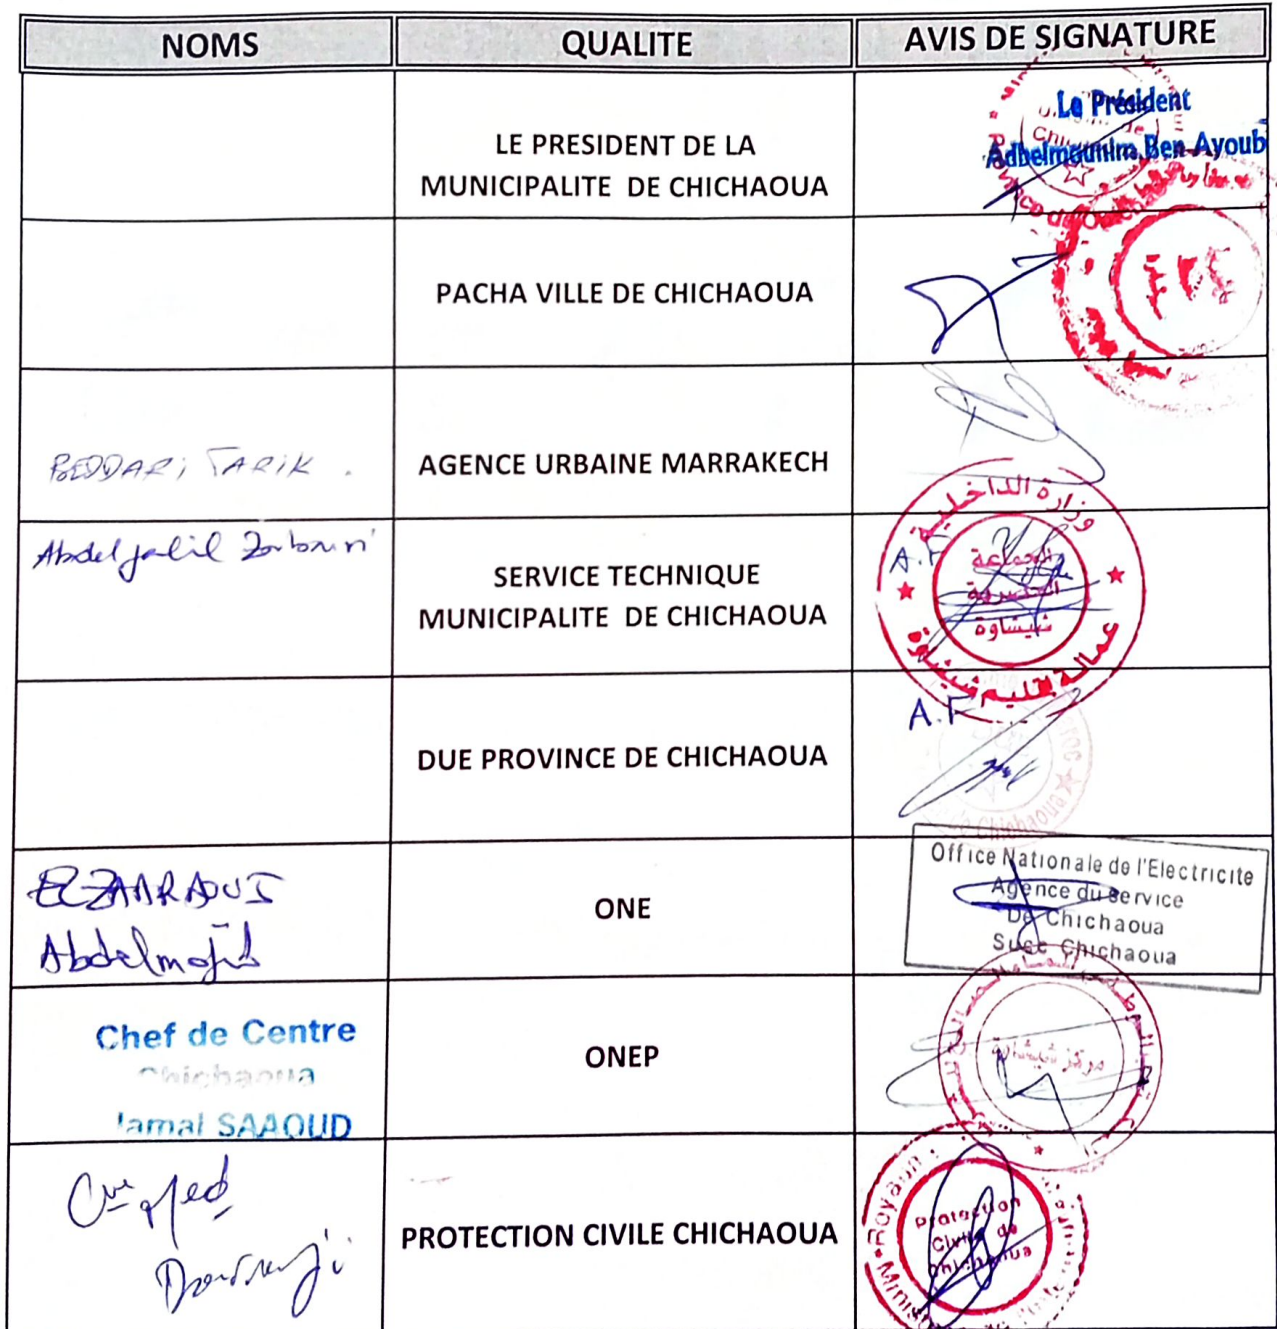 NOMS
QUALITE
AVIS DE SIGNATURE
LE PRESIDENT DE LA
MUNICIPALITE DE CHICHAOUA
Le Président
Adbelmounim Ben Ayoub
PACHA VILLE DE CHICHAOUA
BEDDARI TARIK .
AGENCE URBAINE MARRAKECH
Abdeljalil
SERVICE TECHNIQUE
MUNICIPALITE DE CHICHAOUA
A.F
وزارة الداخلية
الجماعة
الحضرية
شيشاوة
عمالة إقليم شيشاوة
DUE PROVINCE DE CHICHAOUA
A.F
de Chichaoua
ELZAARAOUI
Abdelmajid
ONE
Office Nationale de l'Electricite
Agence du Service
De Chichaoua
Succ Chichaoua
Chef de Centre
Chichaoua
Jamal SAAOUD
ONEP
مركز شيشاوة
PROTECTION CIVILE CHICHAOUA
Royaume
Protection
Civile de
Chichaoua